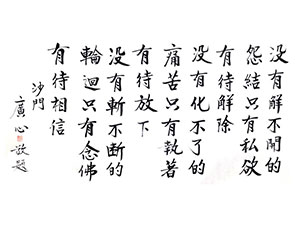 沒有解不開的
怨結只有私欲
有待解除
沒有化不了的
痛苦只有執著
有待放下
沒有斬不斷的
輪迴只有念佛
有待相信
沙門
廣心敬題